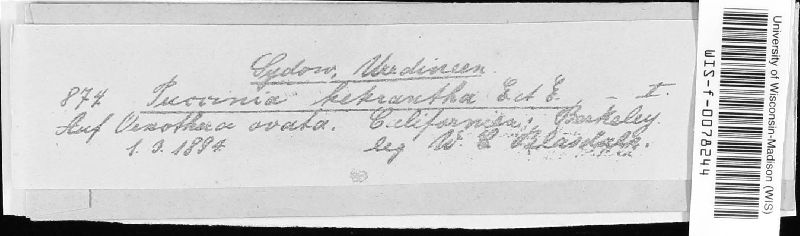 Sydow, Uredineen.
874 Puccinia heterantha E et E. — I.
Auf Oenothera ovata. Californien: Berkeley
1. 3. 1894 leg W C Blasdale.
University of Wisconsin-Madison (WIS)
WIS-f-0078244